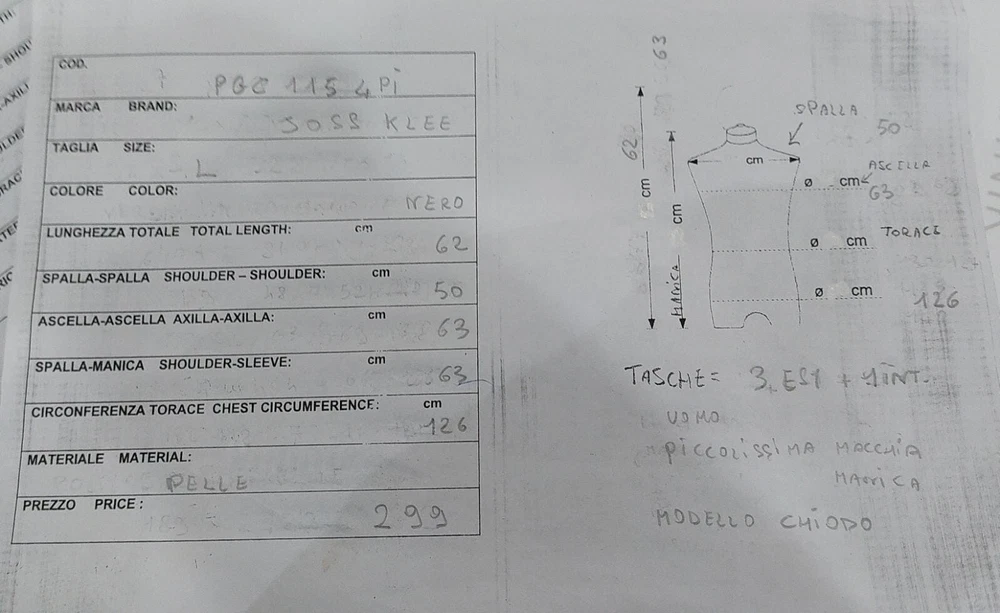 COD. PGC 115 4 Pi
MARCA BRAND:
JOSS KLEE
TAGLIA SIZE:
L
COLORE COLOR:
NERO
LUNGHEZZA TOTALE TOTAL LENGTH: cm
62
SPALLA-SPALLA SHOULDER – SHOULDER: cm
50
ASCELLA-ASCELLA AXILLA-AXILLA: cm
63
SPALLA-MANICA SHOULDER-SLEEVE: cm
63
CIRCONFERENZA TORACE CHEST CIRCUMFERENCE: cm
126
MATERIALE MATERIAL:
PELLE
PREZZO PRICE :
299
63
62
cm
cm
MANICA
SPALLA
50
cm
ASCELLA
ø cm
63
TORACE
ø cm
ø cm
126
TASCHE = 3 EST + 1 INT.
UOMO
PICCOLISSIMA MACCHIA
MANICA
MODELLO CHIODO